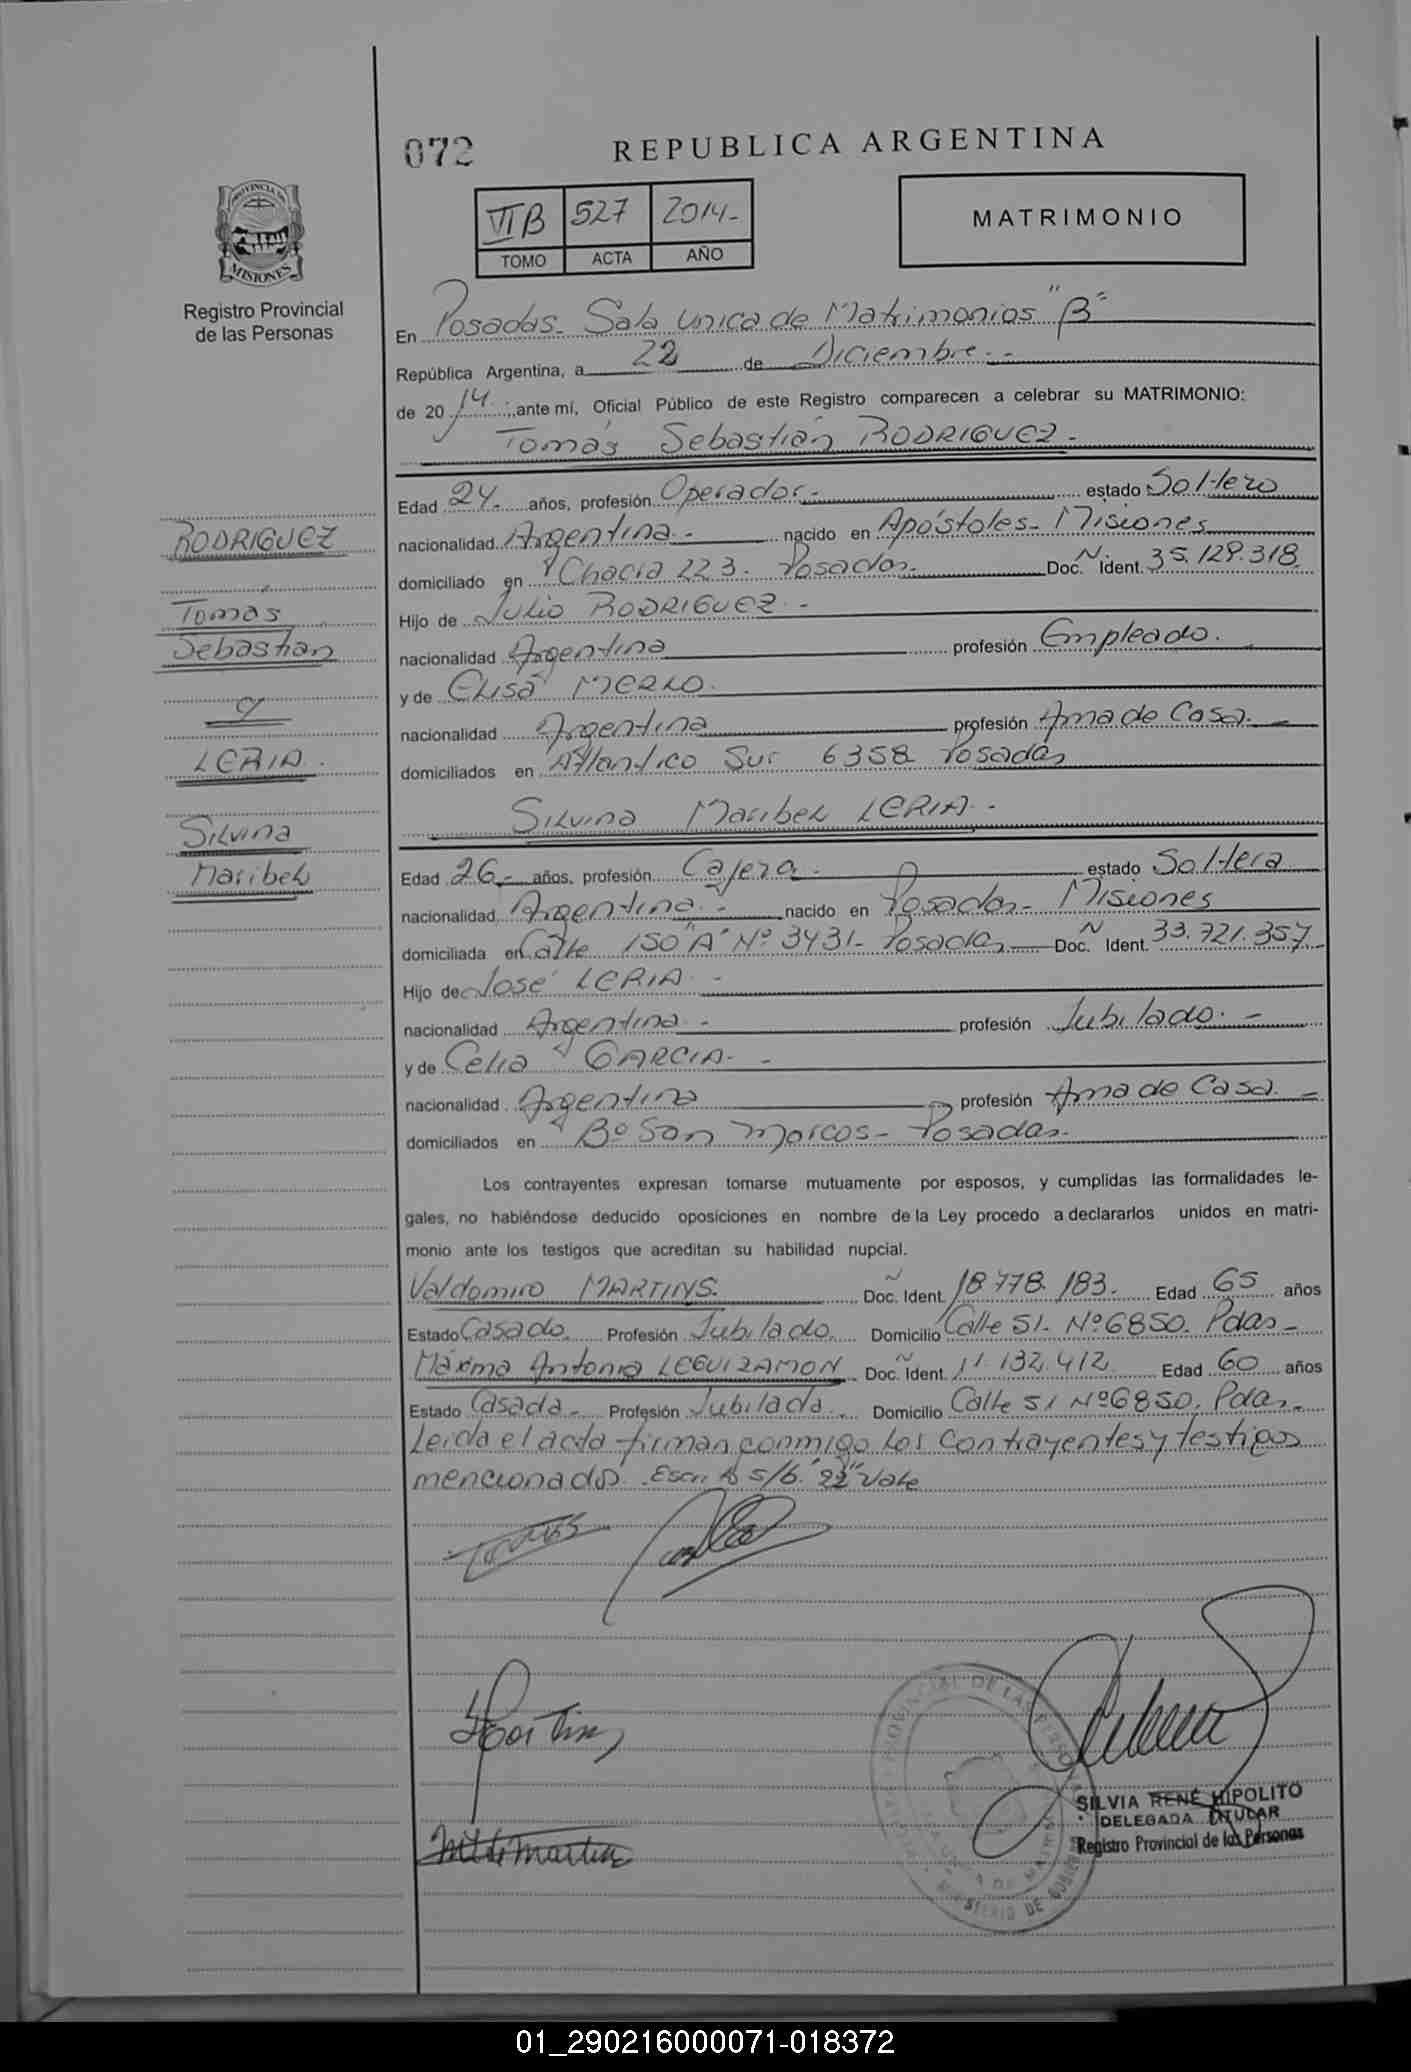 072
REPUBLICA ARGENTINA
VI B 527 2014-
TOMO ACTA AÑO
MATRIMONIO
PROVINCIA DE
MISIONES
Registro Provincial
de las Personas
En Posadas- Sala Unica de Matrimonios "B"-
República Argentina, a 22 de Diciembre.-
de 20 14 ante mí, Oficial Público de este Registro comparecen a celebrar su MATRIMONIO:
Tomás Sebastián RODRIGUEZ-
Edad 24 años, profesión Operador.- estado Soltero
nacionalidad Argentina.- nacido en Apóstoles- Misiones
domiciliado en Chacra 223. Posadas. Doc. Ident. 35.129.318.
Hijo de Julio RODRIGUEZ.-
nacionalidad Argentina profesión Empleado.
y de Elisa MERLO.
nacionalidad Argentina profesión Ama de Casa.-
domiciliados en Atlantico Sur 6358 Posadas
Silvina Maribel LERIA.-
Edad 26.- años, profesión Cajera. estado Soltera
nacionalidad Argentina.- nacido en Posadas- Misiones
domiciliada en Calle 150"A" Nº 3431- Posadas Doc. Ident. 33.721.357
Hijo de José LERIA.-
nacionalidad Argentina.- profesión Jubilado.-
y de Celia GARCIA.-
nacionalidad Argentina profesión Ama de Casa.-
domiciliados en Bº San Marcos- Posadas.
Los contrayentes expresan tomarse mutuamente por esposos, y cumplidas las formalidades le-
gales, no habiéndose deducido oposiciones en nombre de la Ley procedo a declararlos unidos en matri-
monio ante los testigos que acreditan su habilidad nupcial.
Valdomiro MARTINS. Doc. Ident. 18.778.183. Edad 65 años
Estado Casado. Profesión Jubilado. Domicilio Calle 51- Nº6850. Pdas-
Máxima Antonia LEGUIZAMON Doc. Ident. 11.132.412. Edad 60 años
Estado Casada- Profesión Jubilada. Domicilio Calle 51 Nº6850. Pdas.
Leida el acta firman conmigo los contrayentes y testigos
mencionados. s/b. "22" Vale
RODRIGUEZ
Tomás
Sebastian
y
LERIA.
Silvina
Maribel
SILVIA RENÉ HIPOLITO
DELEGADA TITULAR
Registro Provincial de las Personas
01_290216000071-018372